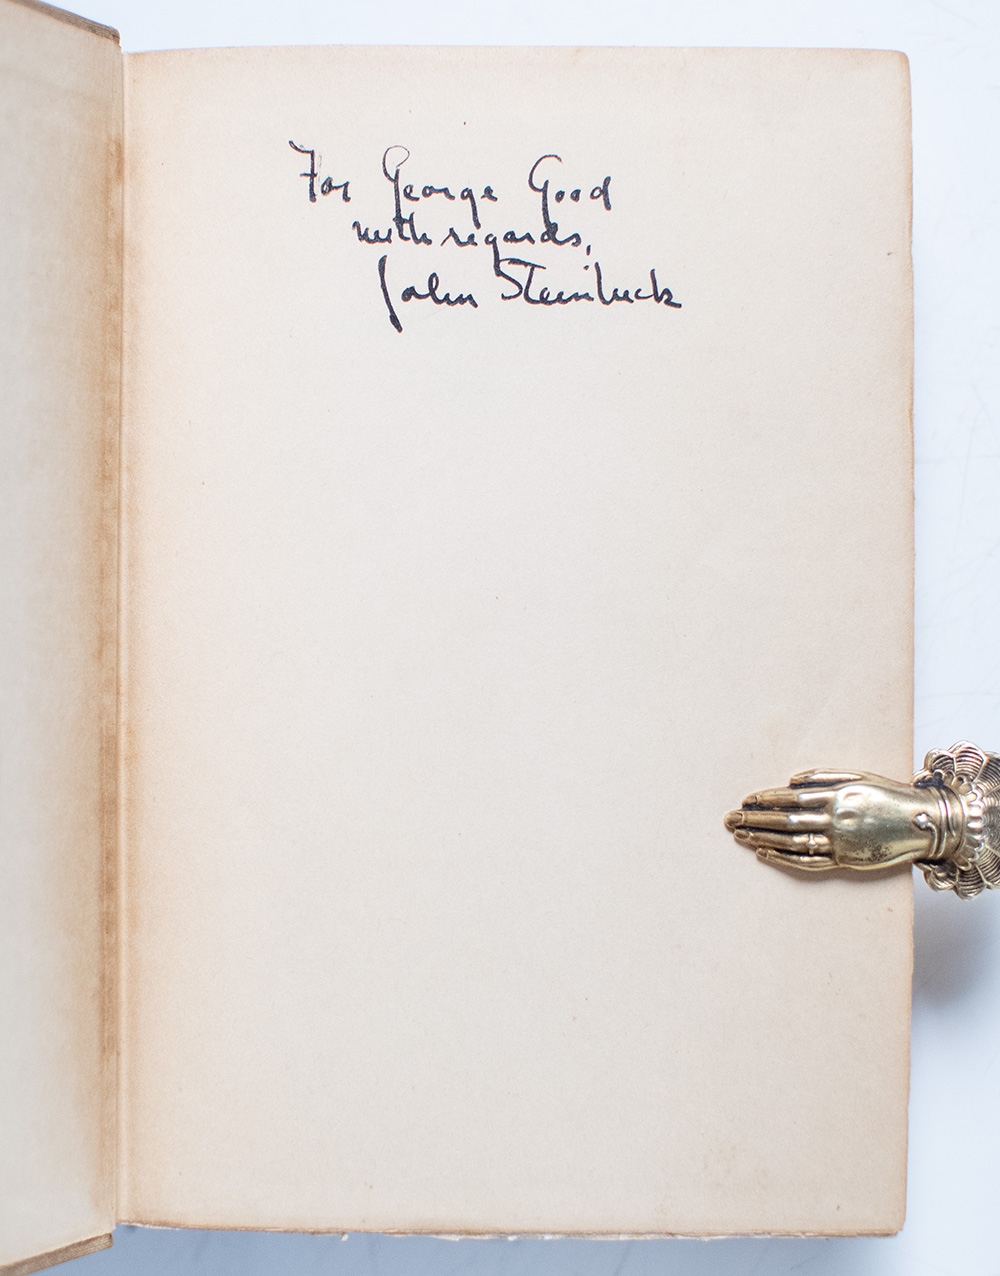 For George Good
with regards,
John Steinbeck